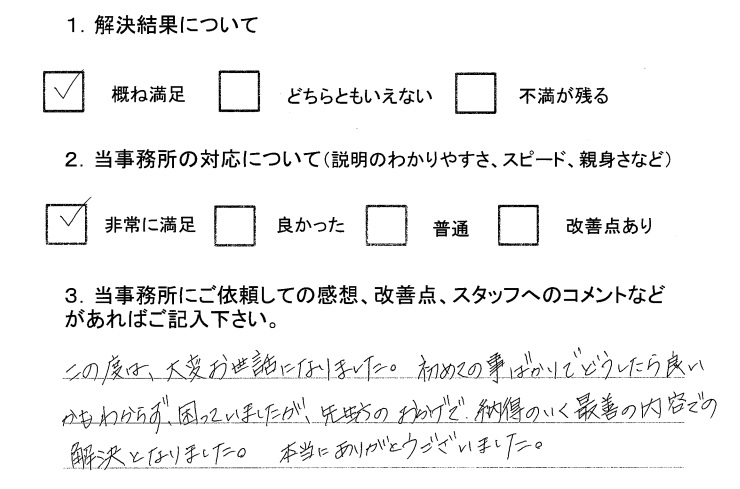 1. 解決結果について
概ね満足 どちらともいえない 不満が残る
2. 当事務所の対応について（説明のわかりやすさ、スピード、親身さなど）
非常に満足 良かった 普通 改善点あり
3. 当事務所にご依頼しての感想、改善点、スタッフへのコメントなど
があればご記入下さい。
この度は、大変お世話になりました。初めての事ばかりでどうしたら良い
かもわからず、困っていましたが、先生方のおかげで、納得のいく最善の内容での
解決となりました。 本当にありがとうございました。